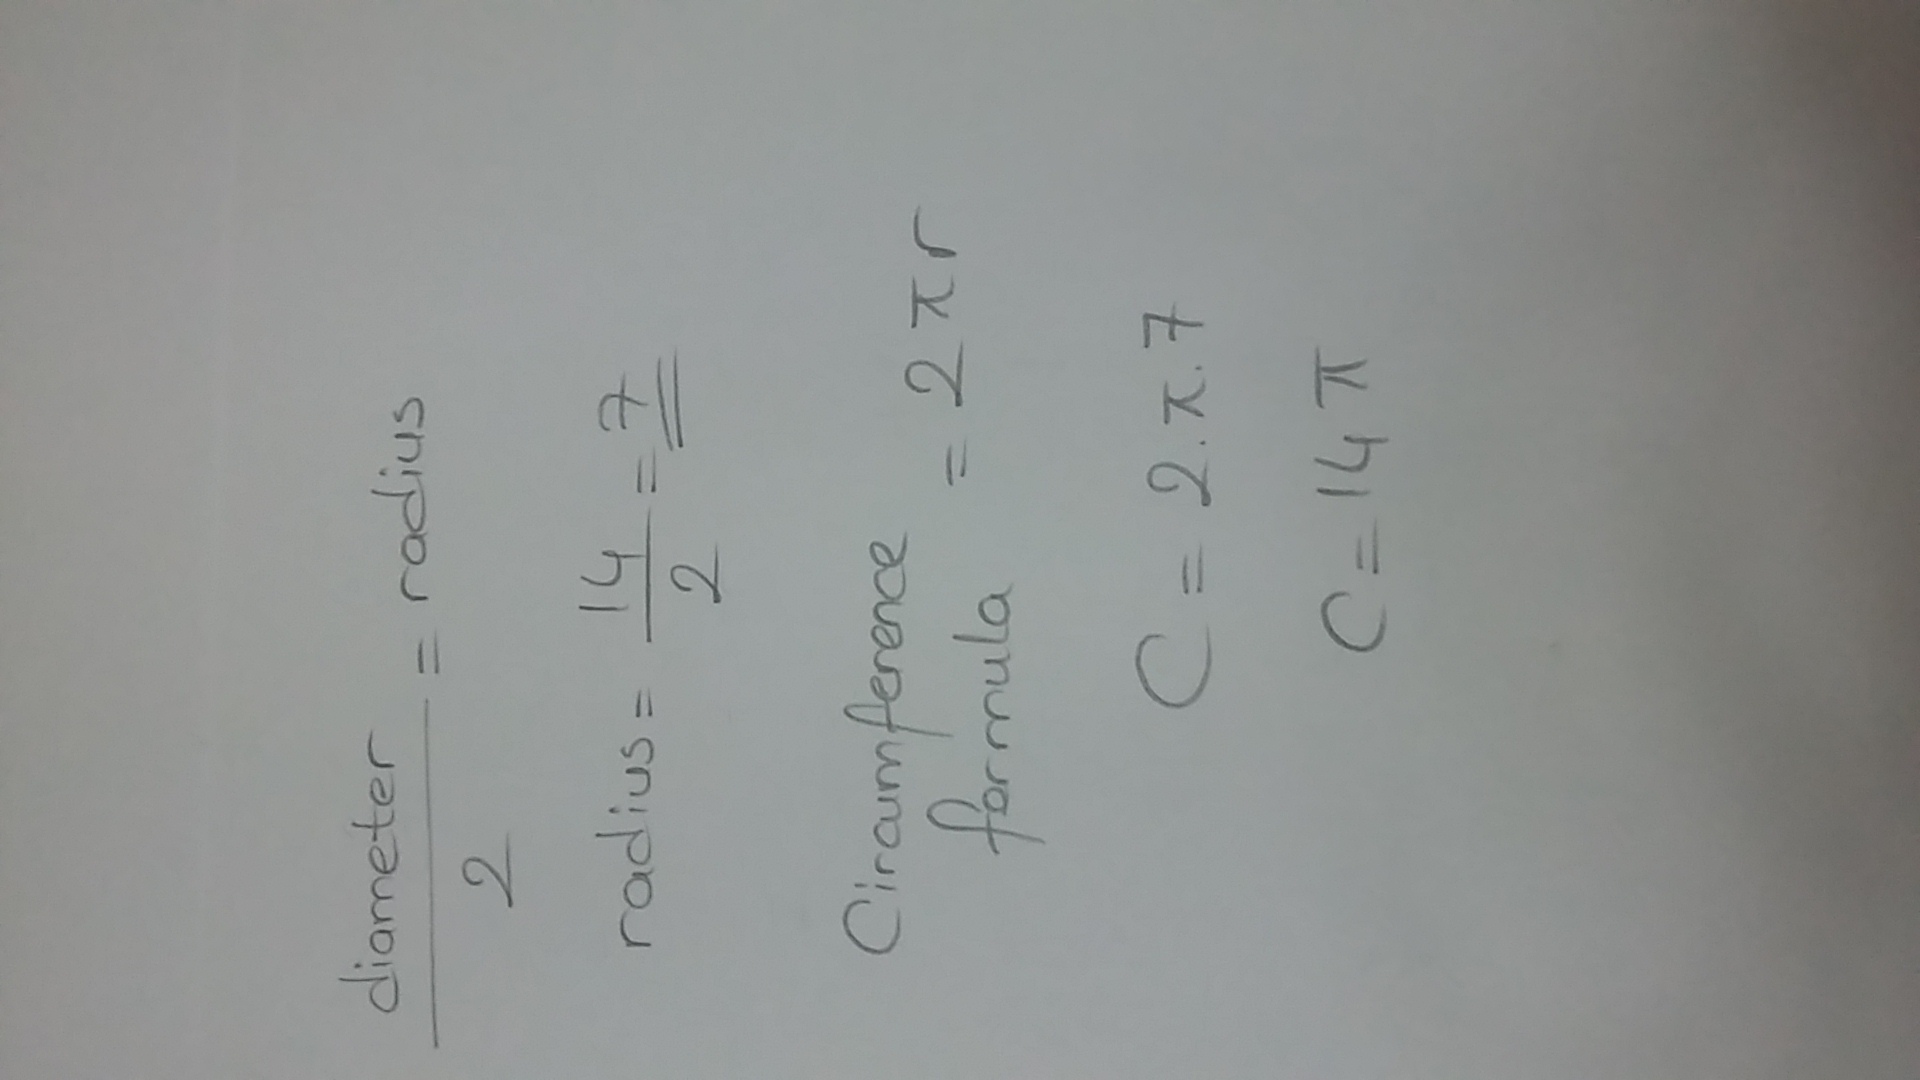 diameter / 2 = radius
radius = 14 / 2 = 7
Circumference formula = 2 π r
C = 2 . π . 7
C = 14 π